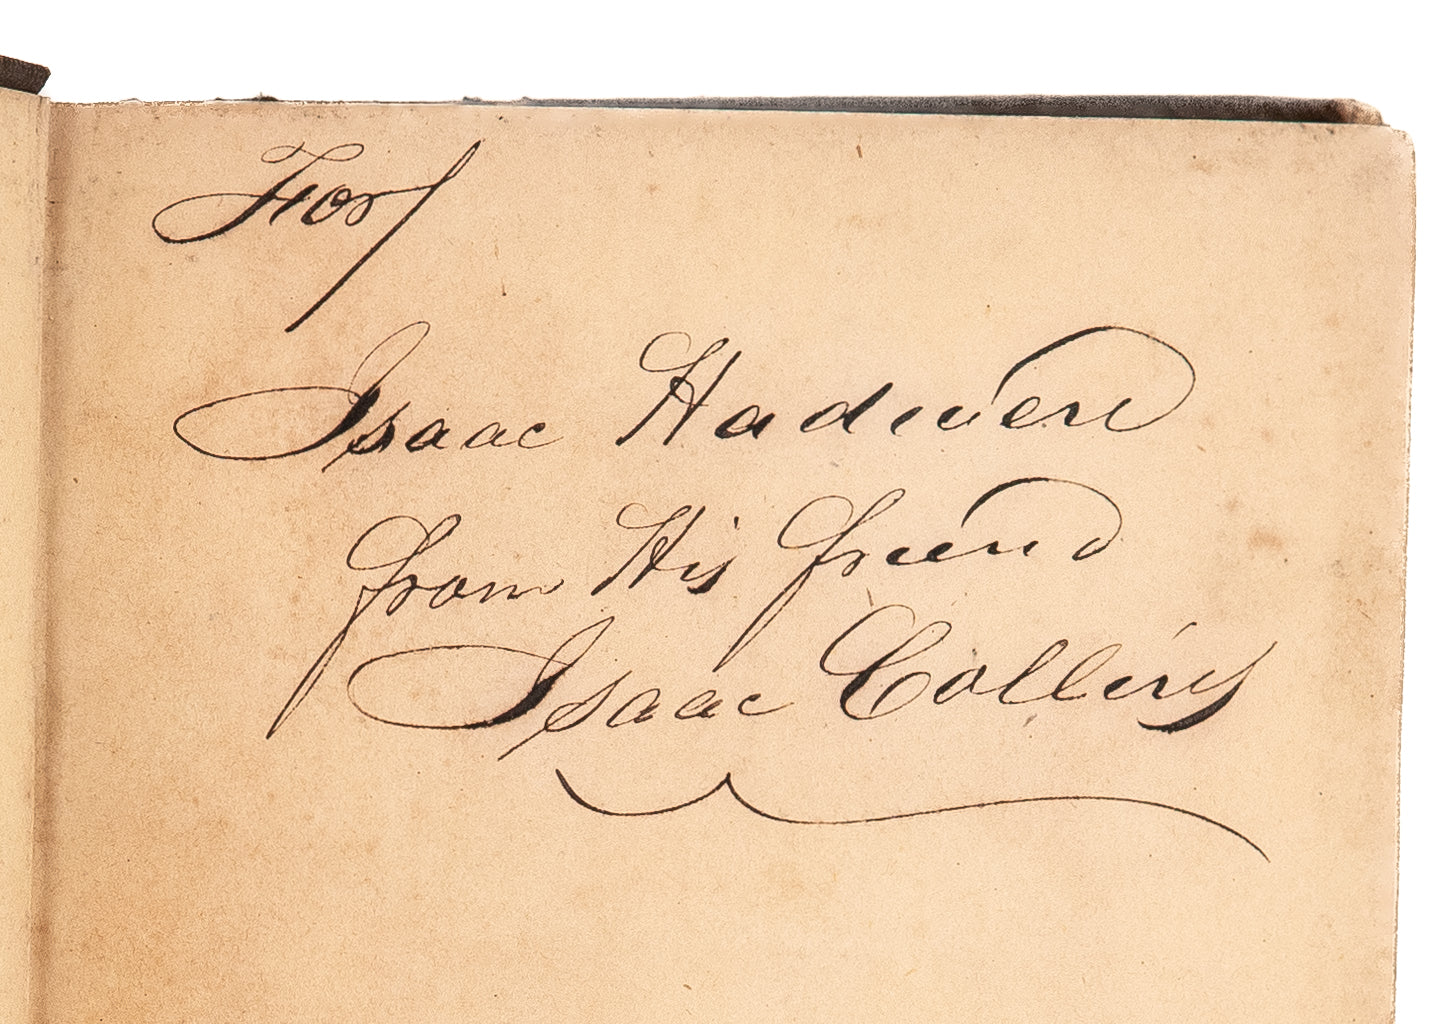 For
Isaac Hadwen
from His friend
Isaac Collins